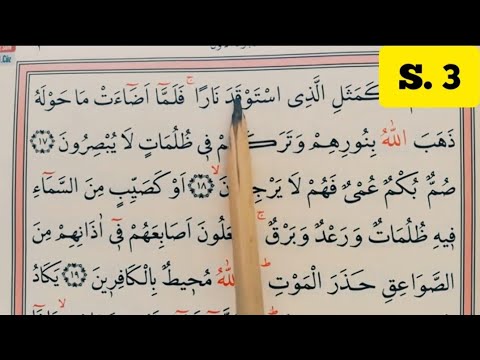 S. 3
كَمَثَلِ الَّذِى اسْتَوْقَدَ نَارًا ۚ فَلَمَّٓا اَضَٓاءَتْ مَا حَوْلَهُ
ذَهَبَ اللّٰهُ بِنُورِهِمْ فِى ظُلُمَاتٍ لَا يُبْصِرُونَ ﴿١٧﴾
صُمٌّ بُكْمٌ عُمْىٌ فَهُمْ لَا ﴿١٨﴾ اَوْ كَصَيِّبٍ مِنَ السَّمَٓاءِ
فِيهِ ظُلُمَاتٌ وَرَعْدٌ وَبَرْقٌ ۚ اَصَابِعَهُمْ فِٓى اٰذَانِهِمْ مِنَ
الصَّوَاعِقِ حَذَرَ الْمَوْتِ ؕ اللّٰهُ مُحِيطٌ بِالْكَافِرِينَ ﴿١٩﴾ يَكَادُ